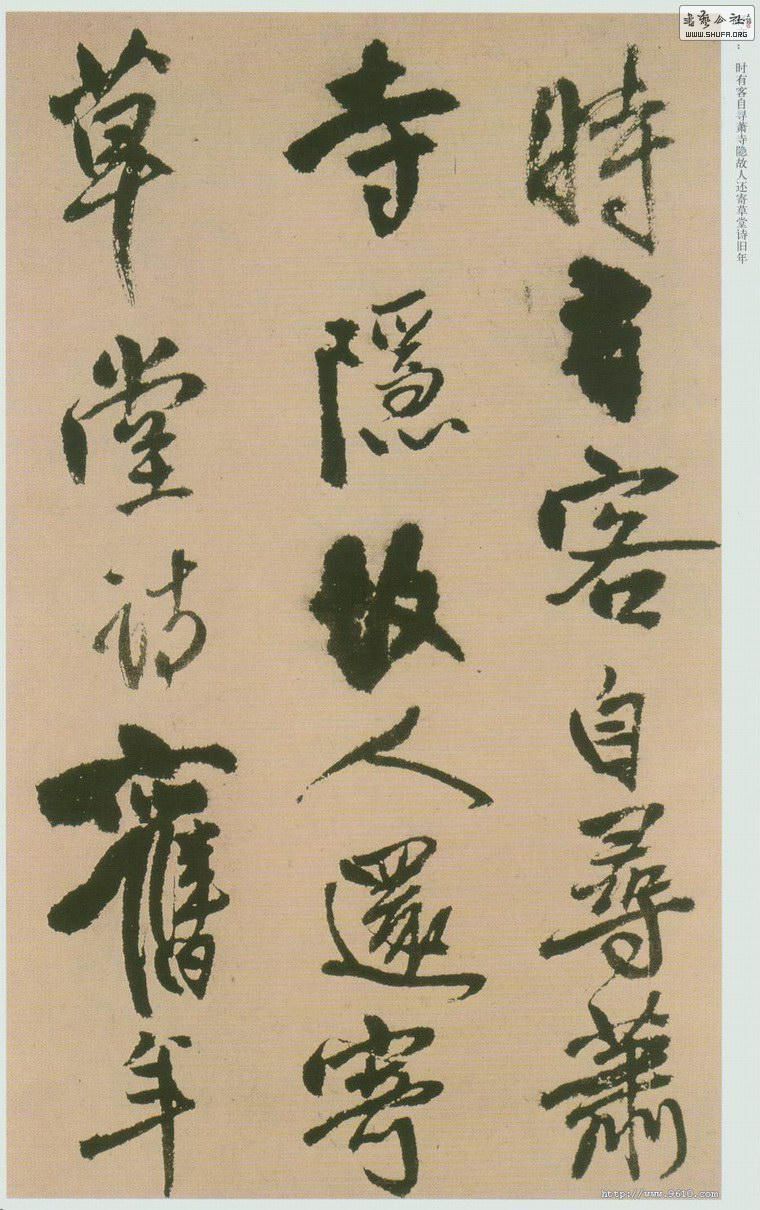 時有客自尋蕭
寺隱故人還寄
草堂詩舊年
：时有客自寻萧寺隐故人还寄草堂诗旧年
WWW.SHUFA.ORG
http://www.9610.com